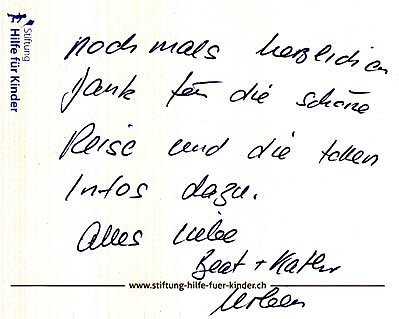 Stiftung
Hilfe für Kinder
nochmals herzlichen
Dank für die schöne
Reise und die tollen
Infos dazu.
Alles Liebe
Beat + Kathr
www.stiftung-hilfe-fuer-kinder.ch